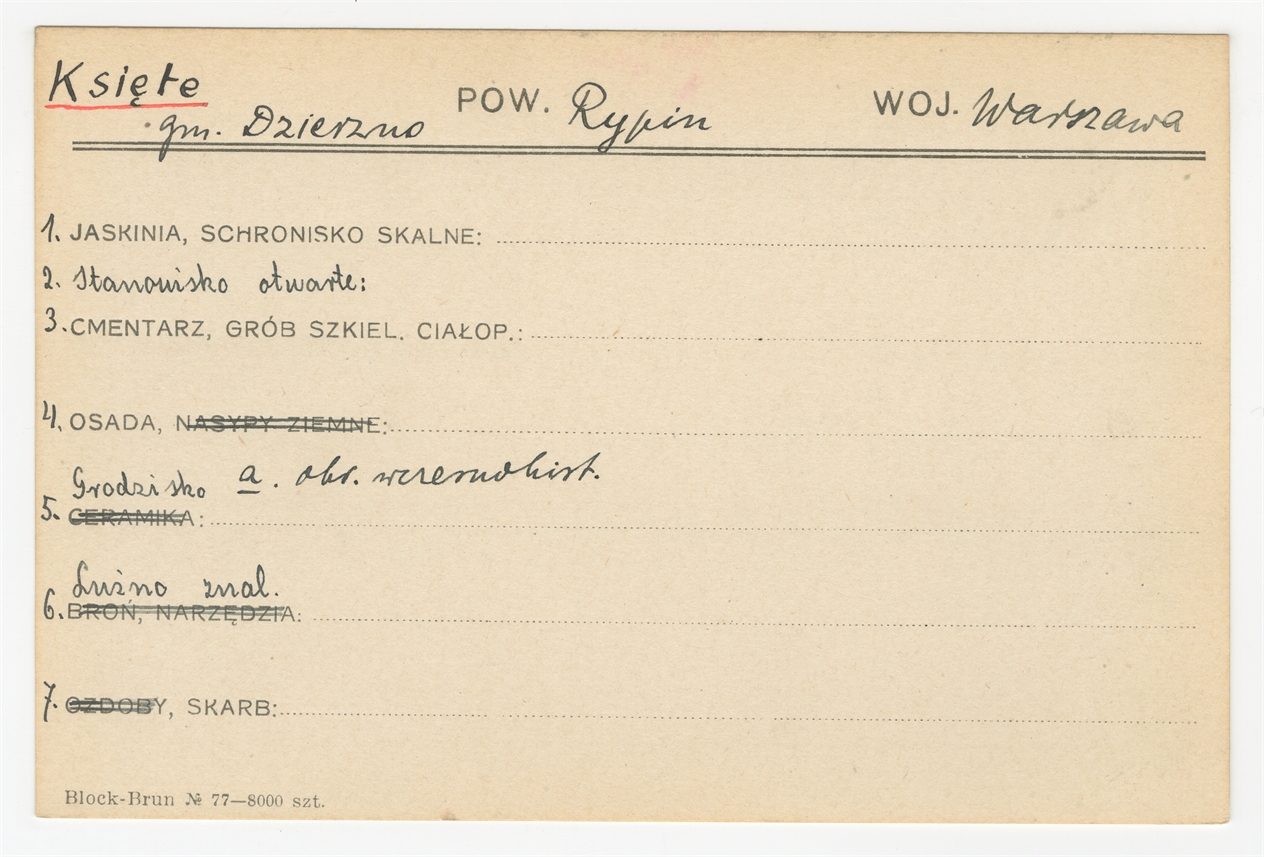 Księte
gm. Dzierzno POW. Rypin WOJ. Warszawa
1. JASKINIA, SCHRONISKO SKALNE:
2. Stanowisko otwarte:
3. CMENTARZ, GRÓB SZKIEL. CIAŁOP.:
4. OSADA, NASYPY ZIEMNE:
Grodzisko a. okr. wczesnohist.
5. CERAMIKA:
Luźno znal.
6. BROŃ, NARZĘDZIA:
7. OZDOBY, SKARB:
Block-Brun № 77—8000 szt.